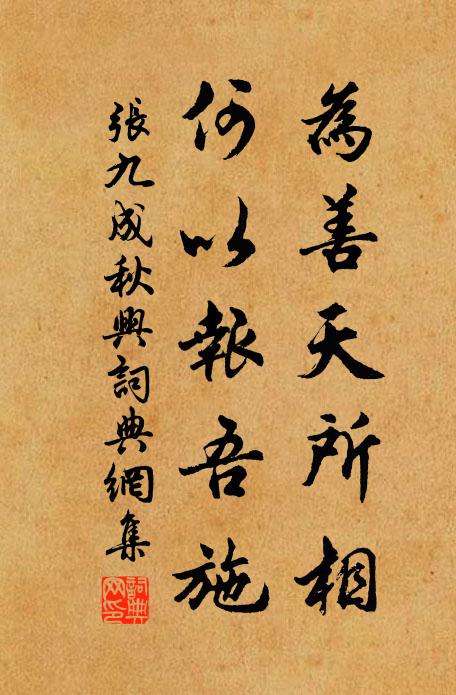 為善天所相
何以報吾施
張九成秋興詞典網集
詞典網印